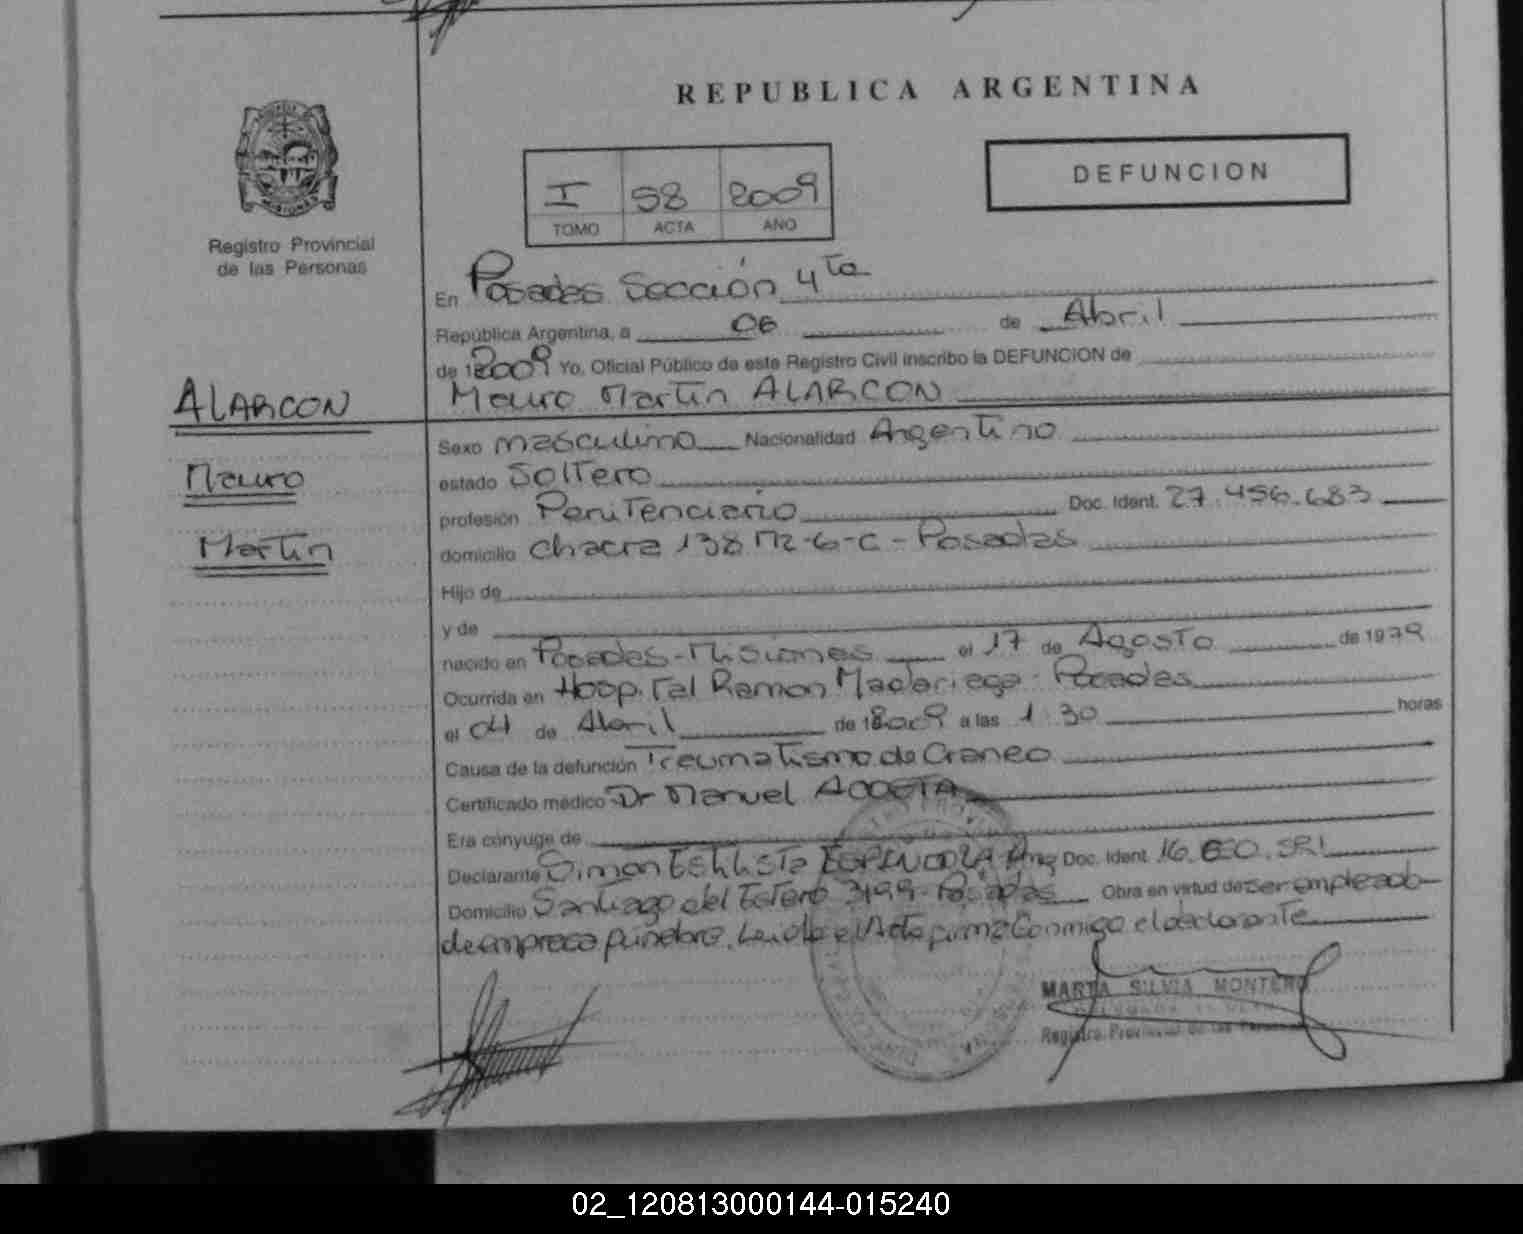 REPUBLICA ARGENTINA
MISIONES
Registro Provincial
de las Personas
I 58 2009
TOMO ACTA AÑO
DEFUNCION
En Posadas Sección 4ta
República Argentina, a 06 de Abril
de 2009 Yo, Oficial Público de este Registro Civil inscribo la DEFUNCION de
Mauro Martín ALARCON
ALARCON
Mauro
Martín
Sexo masculino Nacionalidad Argentino
estado Soltero
profesión Penitenciario Doc. Ident. 27.456.683
domicilio Chacra 138 Mz-6-C - Posadas
Hijo de
y de
nacido en Posadas-Misiones el 17 de Agosto de 1979
Ocurrida en Hospital Ramon Madariaga - Posadas
el 04 de Abril de 2009 a las 1:30 horas
Causa de la defunción Traumatismo de Craneo
Certificado médico Dr Manuel ACOSTA
Era cónyuge de
Declarante Simon ESPINDOLA Arg Doc. Ident. 16.
Domicilio Santiago del Estero 3199-Posadas Obra en virtud de ser empleado
de empresa fúnebre. Leida el Acta firma Conmigo el declarante
MARTA SILVIA MONTERO
Registro Provincial de las Personas
02_120813000144-015240